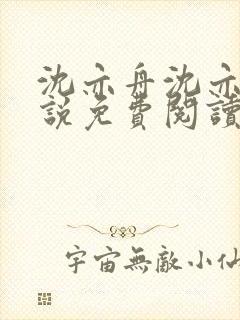 沈亦舟沈亦
說免費閱讀
宇宙無敵小仙